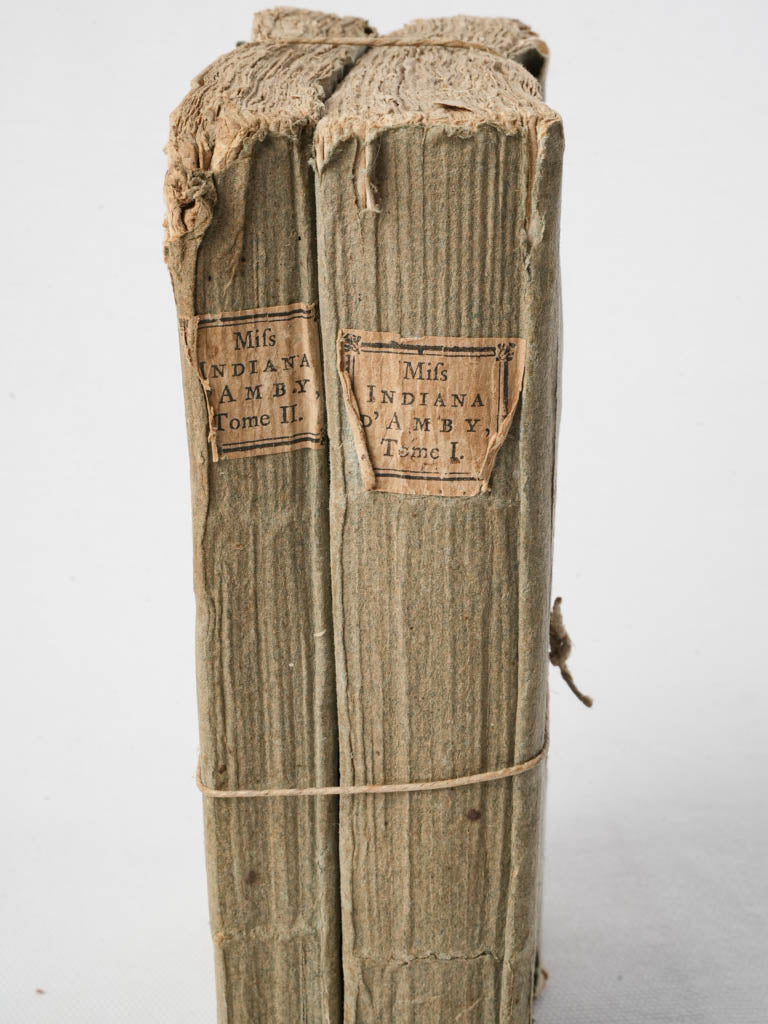 Miſs
INDIANA
D'AMBY,
Tome II.
Miſs
INDIANA
D'AMBY,
Tome I.